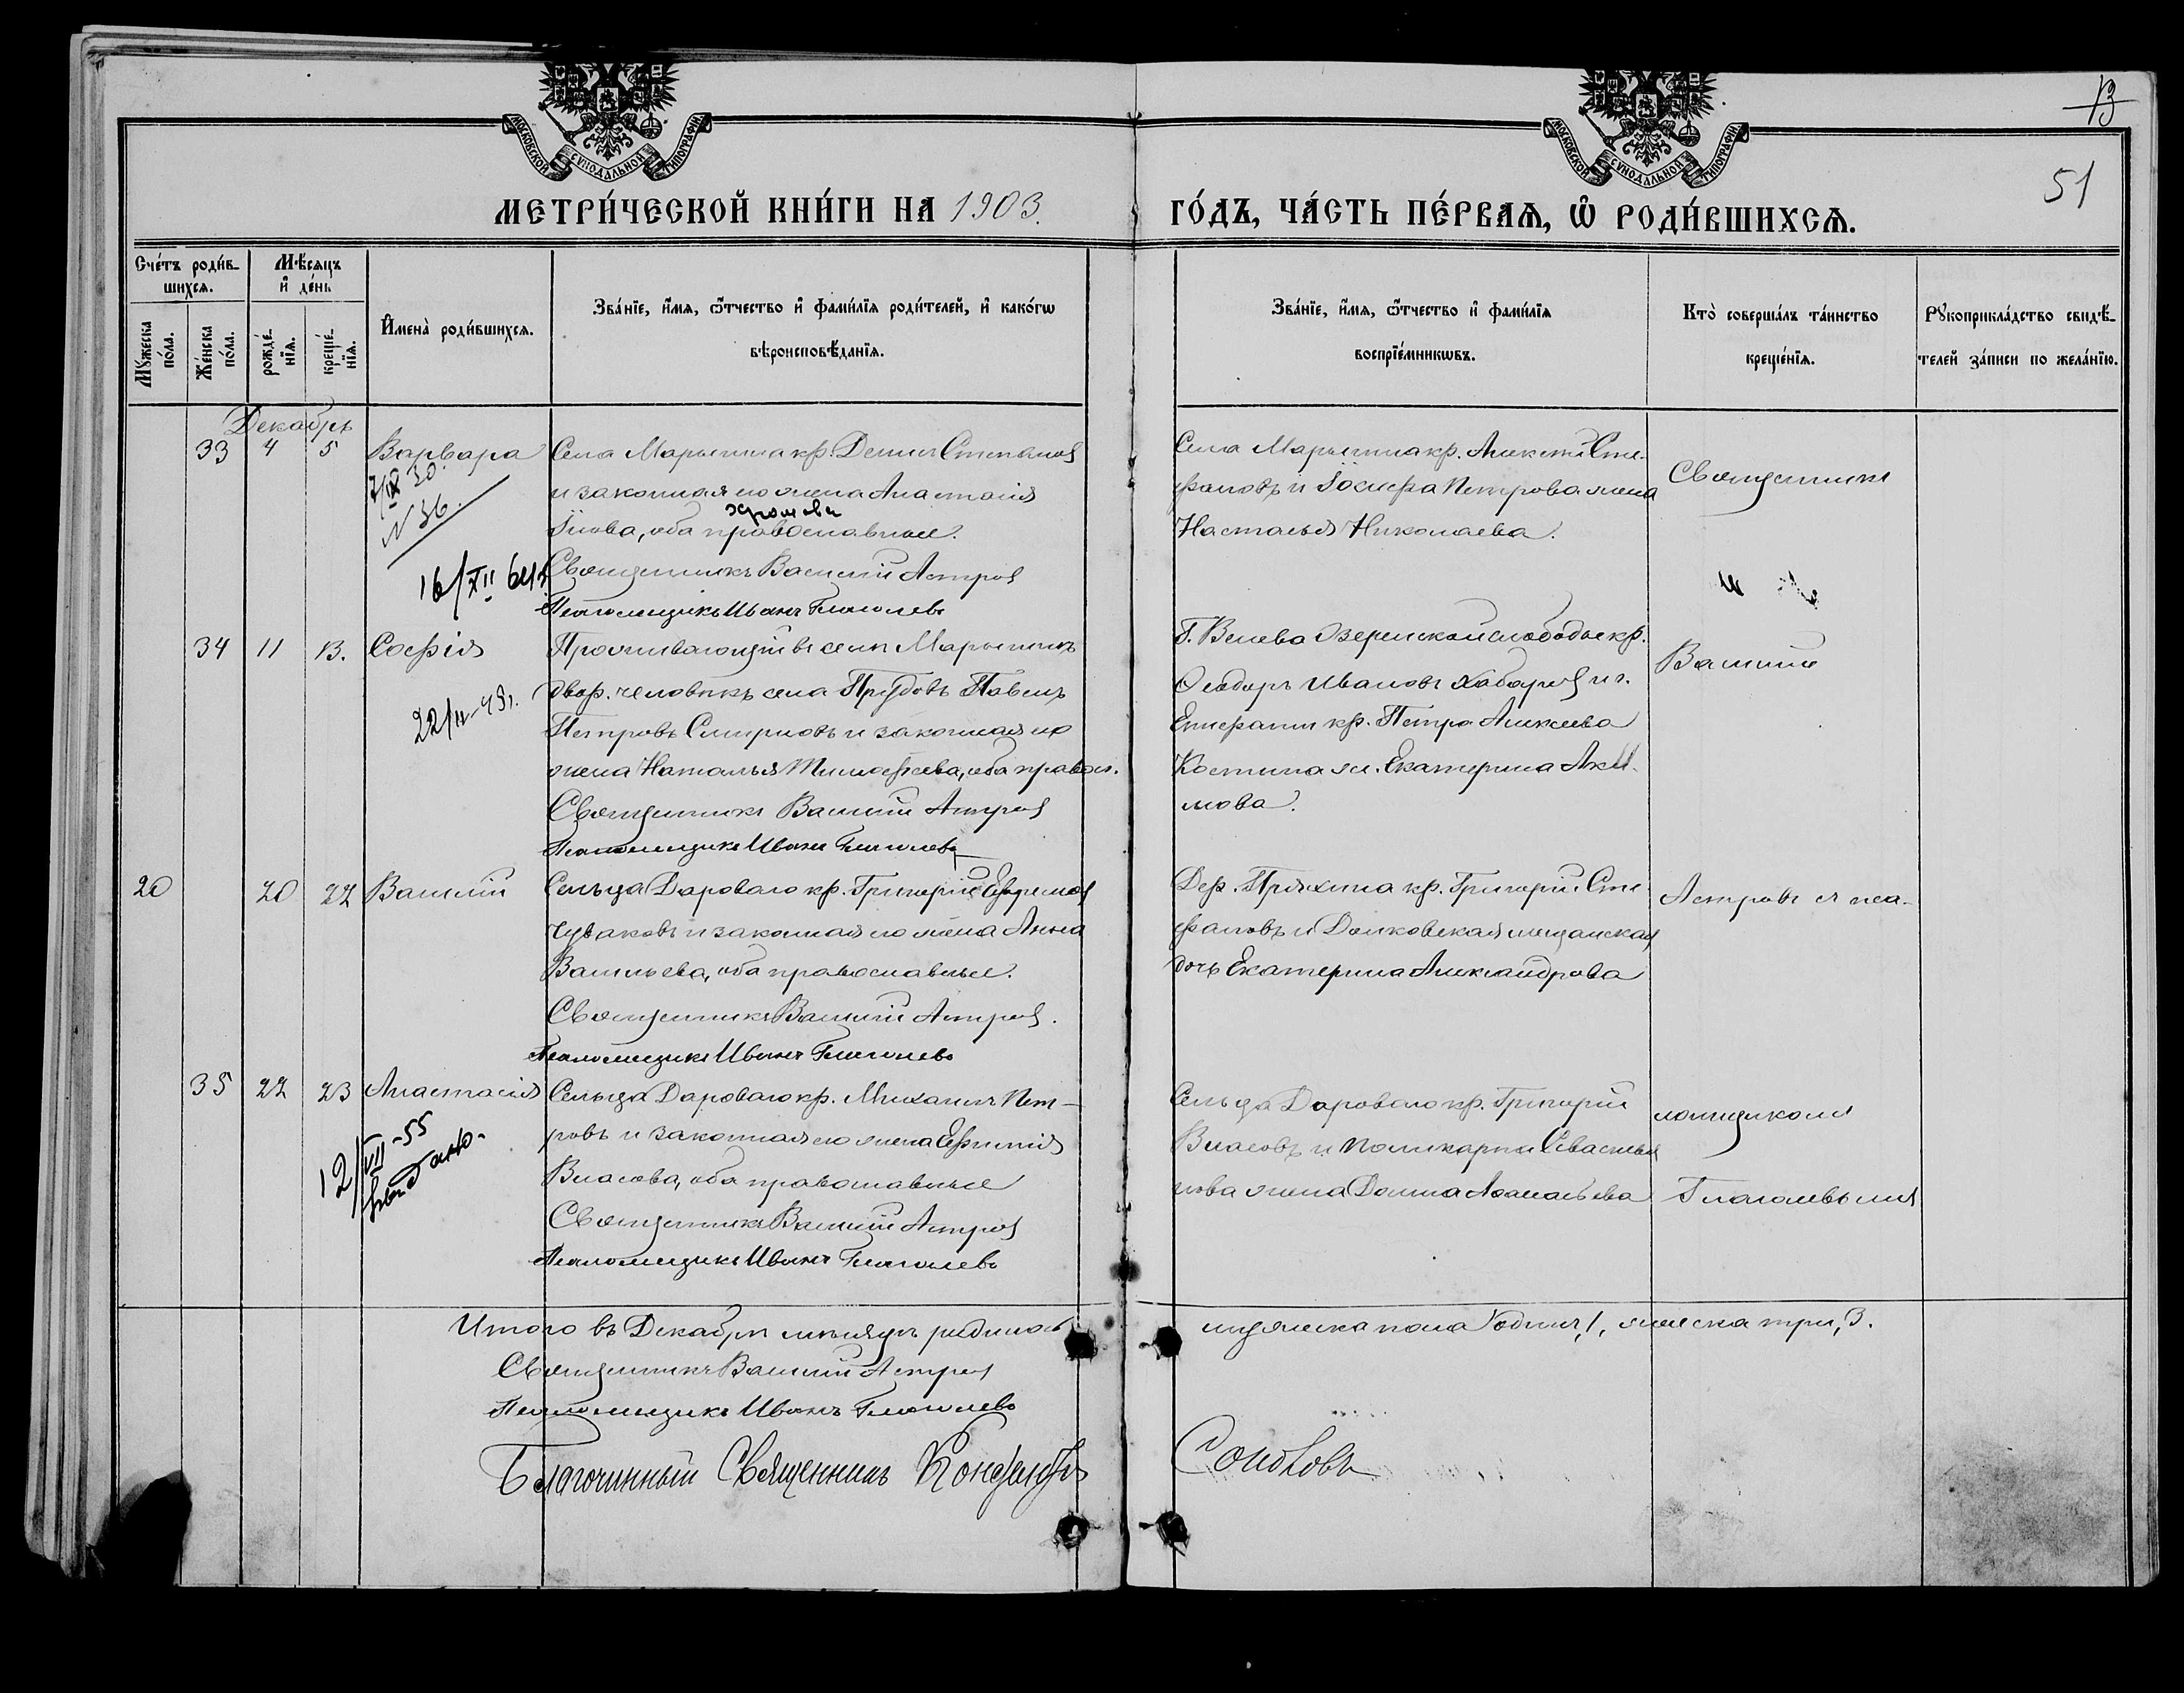 МОСКОВСКОЙ СѴНОДАЛЬНОЙ ТИПОГРАФІИ
МОСКОВСКОЙ СѴНОДАЛЬНОЙ ТИПОГРАФІИ
13
51
МЕТРИ́ЧЕСКОЙ КНИ́ГИ НА 1903. ГО́ДЪ, ЧА́СТЬ ПЕ́РВАѦ, Ѡ҆ РОДИ́ВШИХСѦ.
Сче́тъ роди́в-
шихсѧ.
Мѣ́сѧцъ
и҆ де́нь
Мꙋ́жеска
по́ла.
Же́нска
по́ла.
рожде́-
нїѧ.
креще́-
нїѧ.
И҆мена̀ роди́вшихсѧ.
Зва́нїе, и҆́мѧ, ѻ҆́тчество и҆ фами́лїѧ роди́телей, и҆ како́гѡ
вѣроисповѣ́данїѧ.
Зва́нїе, и҆́мѧ, ѻ҆́тчество и҆ фами́лїѧ
воспрїе́мникѡвъ.
Кто̀ соверша́лъ та́инство
креще́нїѧ.
Рꙋкоприкла́дство свидѣ́-
телей за́писи по жела́нїю.
Декабрь
33 4 5 Варвара
7/IX 30
N 36.
16/XII 64г
Села Марьинка кр. Денис Степанов
и законная его жена Анастасія
Хромова
Іпова, оба православные.
Священникъ Василій Астров
Псаломщикъ Иванъ Глаголевъ
Села Марьинка кр. Алексѣй Сте-
фановъ и Іосифа Петрова жена
Наталья Николаева.
Священник
34 11 13. Софія
22/II-49г.
Проживающій въ селѣ Марьинкѣ
двор. человѣкъ села Прудовъ Павелъ
Петровъ Смирновъ и законная его
жена Наталья Тимофеева, оба правосл.
Священникъ Василій Астров
Псаломщикъ Иванъ Глаголевъ
Г. Венева Озеренской слободы кр.
Ѳеодоръ Ивановъ Хабаров и г.
Епифани кр. Петра Алексеева
Костина ж. Екатерина Аки-
мова.
Василій
20 20 22 Василій
Сельца Дароваго кр. Григорій Ефремов
Чуваковъ и законная его жена Анна
Васильева, оба православные.
Священникъ Василій Астров.
Псаломщикъ Иванъ Глаголевъ
Дер. Пряхина кр. Григорій Сте-
фановъ и Донковская мещанская
дочь Екатерина Александрова
Астровъ съ пса-
35 22 23 Анастасія
12/VII-55
Сельца Дароваго кр. Михаилъ Пет-
ровъ и законная его жена Ефимія
Власова, оба православные
Священникъ Василій Астров
Псаломщикъ Иванъ Глаголевъ
Сельца Дароваго кр. Григорій
Власовъ и Поликарпа Севастья
нова жена Домна Аѳанасьева
ломщикомъ
Глаголевымъ
Итого въ Декабрѣ мѣсяцѣ родилось мужеска пола одинъ, 1, женска три, 3.
Священникъ Василій Астров
Псаломщикъ Иванъ Глаголевъ
Благочинный Священникъ Соколовъ